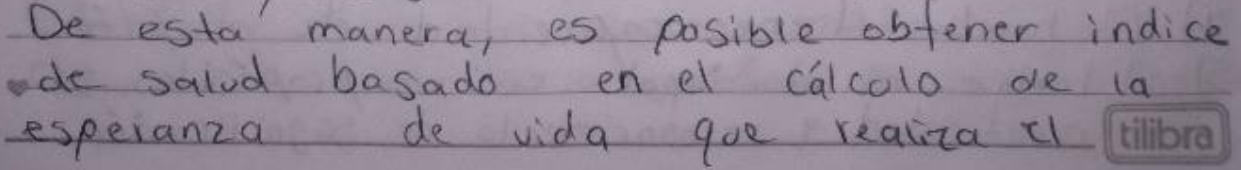 De esta manera, es posible obtener indice
de salud basado en el cálculo de la
esperanza de vida que realiza el tilibra